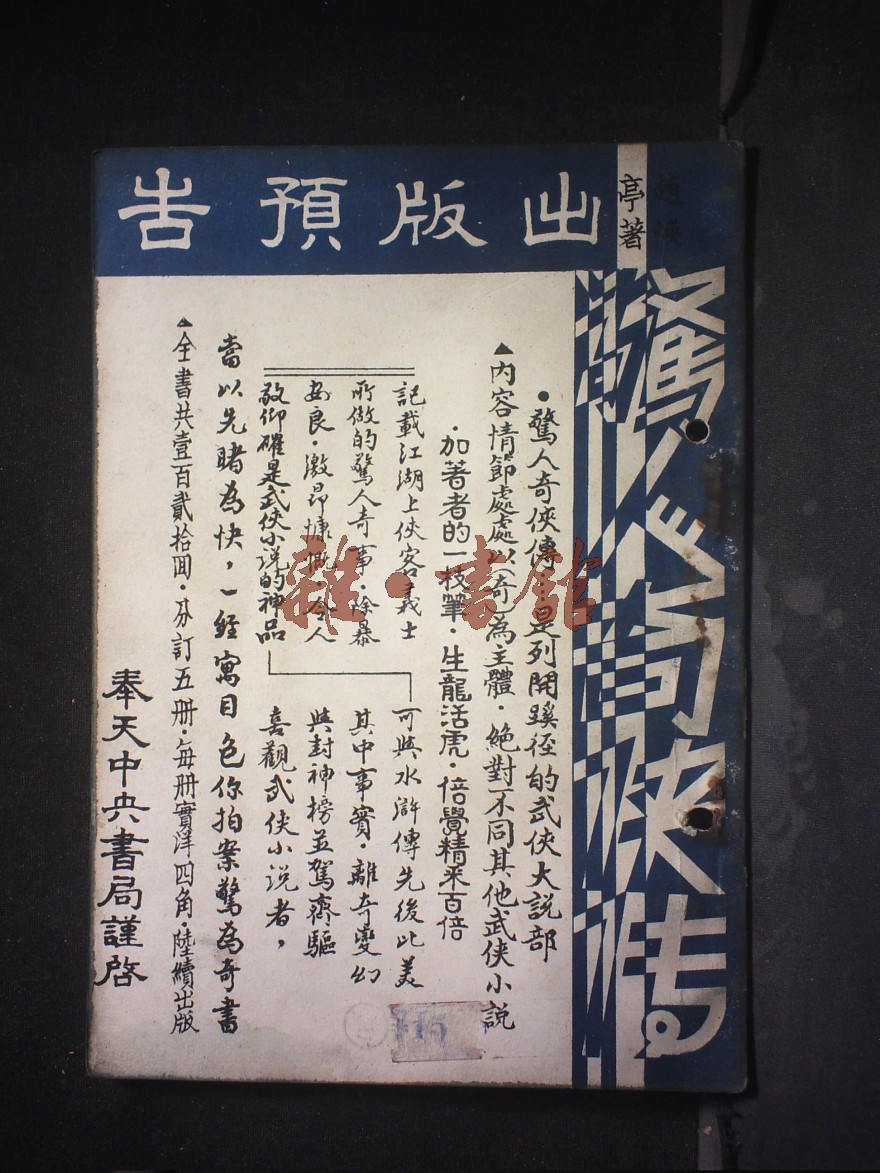 出版預告
亭著
驚人奇俠传
●驚人奇俠傳·是列開蹊径的武侠大説部
▲內容情節處處以奇為主體·絕對不同其他武侠小説
·加著者的一枝筆·生龍活虎·倍覺精采百倍
記載江湖上侠客義士
所做的驚人奇事·除暴
安良·激昂慷慨·令人
敬仰確是武侠小説的神品
可與水滸傳先後比美
其中事實·離奇變幻
與封神榜並駕齊驅
喜觀武侠小説者，
當以先睹為快，一經寓目包你拍案驚為奇書
▲全書共壹百貳拾囬·分訂五册·每册實洋四角·陸續出版
奉天中央書局謹啓
雜·書館